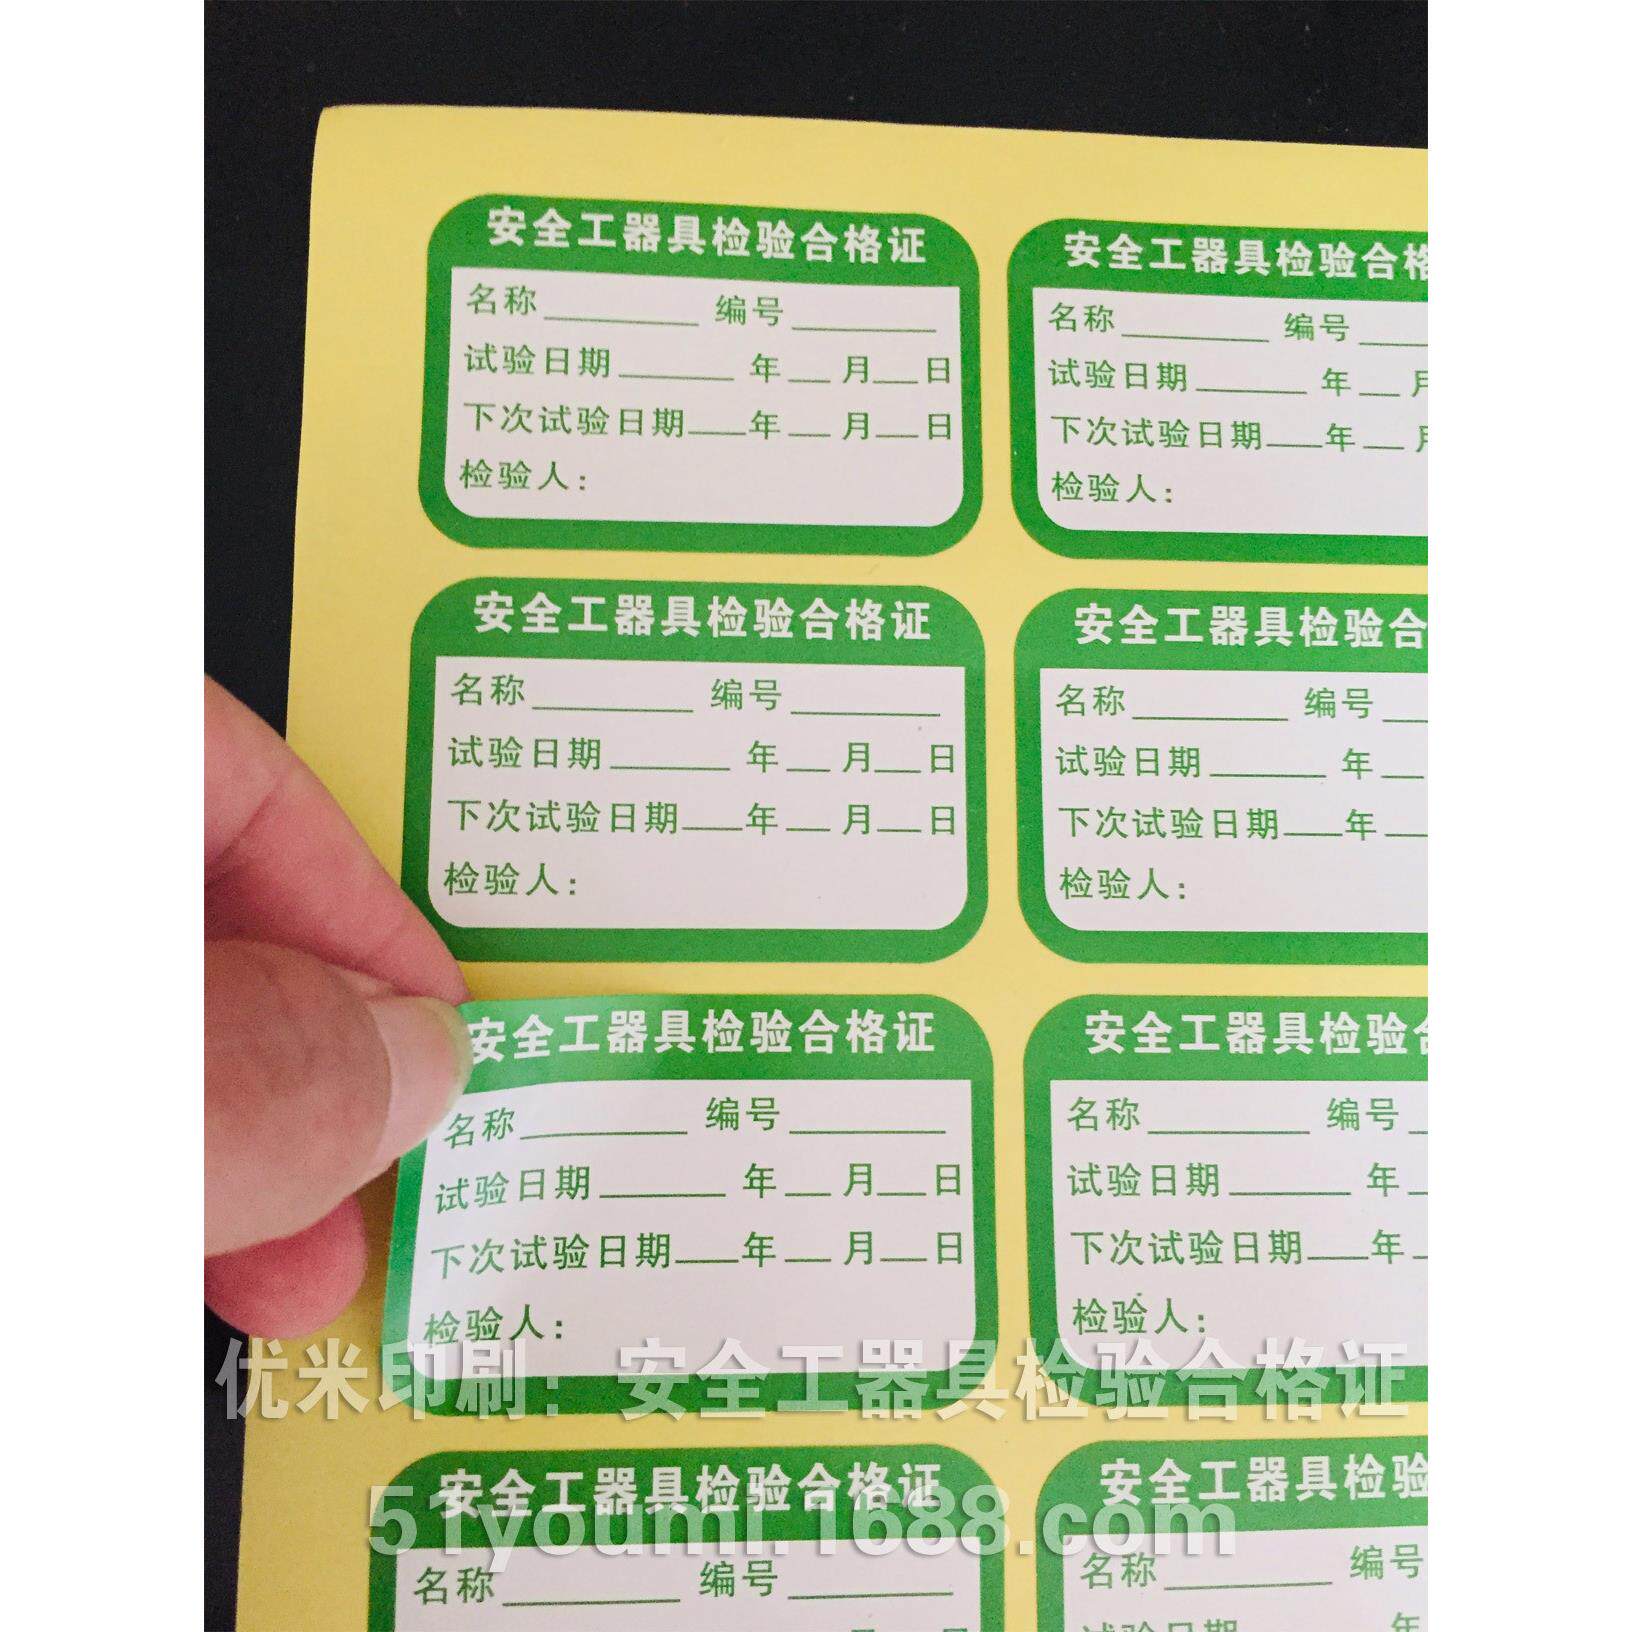 安全工器具检验合格证
名称______ 编号______
试验日期______年__月__日
下次试验日期___年__月__日
检验人:
安全工器具检验合格
名称______ 编号___
试验日期______年__月
下次试验日期___年__月
检验人:
安全工器具检验合格证
名称______ 编号______
试验日期______年__月__日
下次试验日期___年__月__日
检验人:
安全工器具检验合
名称______ 编号__
试验日期______年__
下次试验日期___年__
检验人:
安全工器具检验合格证
名称______ 编号______
试验日期______年__月__日
下次试验日期___年__月__日
检验人:
安全工器具检验合
名称______ 编号_
试验日期______年_
下次试验日期___年_
检验人:
优米印刷:安全工器具检验合格证
安全工器具检验合格证
名称______ 编号______
安全工器具检验
名称______ 编号
试验日期 年
51youmi.1688.com